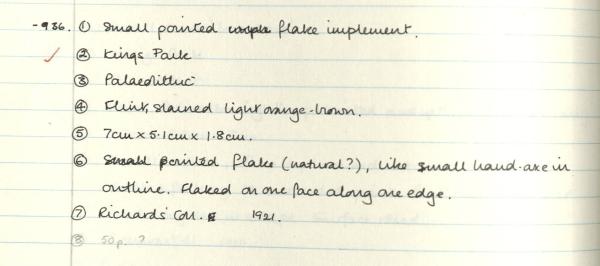 -936. ① Small pointed flake implement.
② Kings Park
③ Palaeolithic
④ Flint, stained light orange-brown.
⑤ 7cm x 5.1cm x 1.8cm.
⑥ Small pointed flake (natural?), like small hand-axe in
outline. Flaked on one face along one edge.
⑦ Richards' Coll. 1921.
⑧ 50p. ?